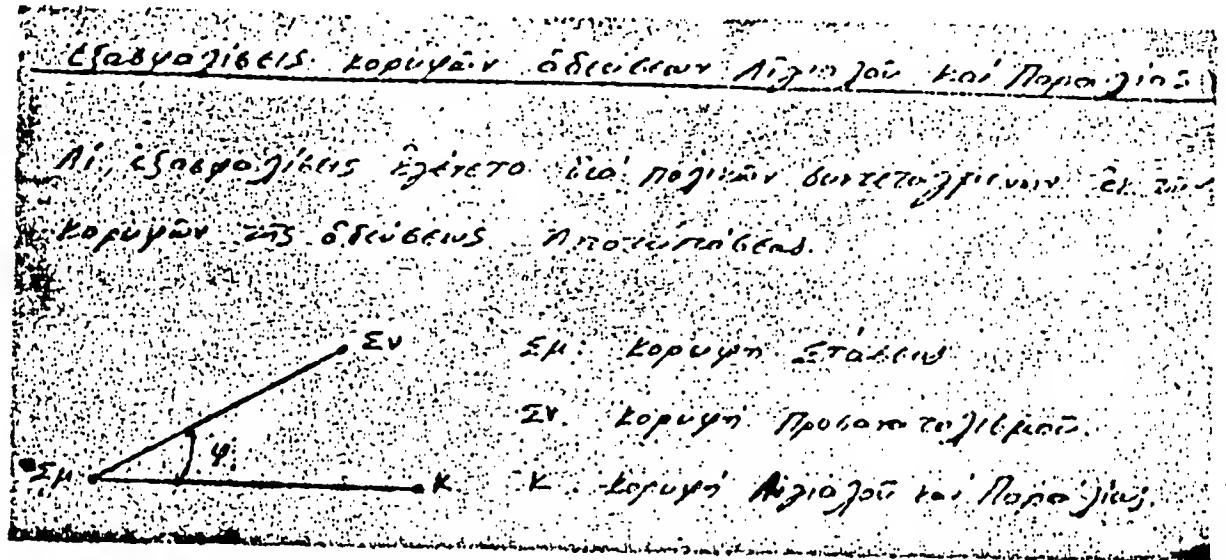 Ἐξασφαλίσεις κορυφῶν ὁδεύσεων Αἰγιαλοῦ καί Παραλίας
Αἱ ἐξασφαλίσεις ἐγένετο διά πολικῶν συντεταγμένων ἐκ τῶν
κορυφῶν τῆς ὁδεύσεως Ἀποτυπώσεως.
Σν
Σμ: Κορυφή Στάσεως
Σν: Κορυφή Προσανατολισμοῦ.
φ
Σμ Κ Κ: Κορυφή Αἰγιαλοῦ καί Παραλίας